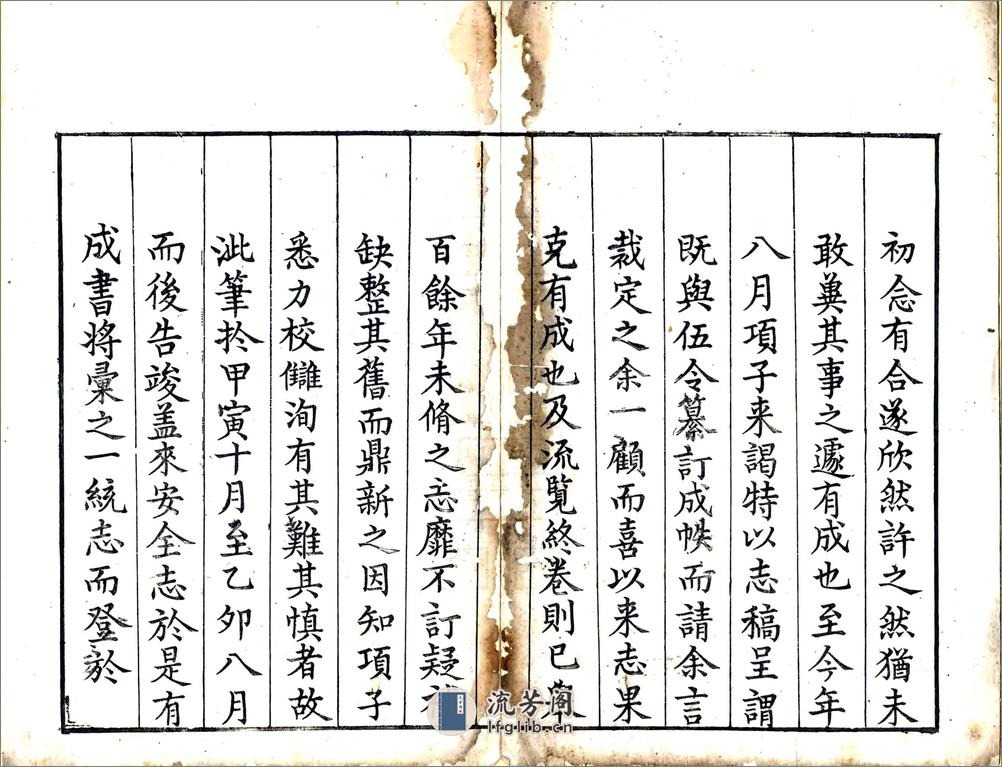 初念有合遂欣然許之然猶未
敢冀其事之遽有成也至今年
八月項子来謁特以志稿呈謂
既與伍令纂訂成帙而請余言
裁定之余一顧而喜以来志果
克有成也及流覽終卷則已
百餘年未脩之志靡不訂疑
缺整其舊而鼎新之因知項子
悉力校讎洵有其難其慎者故
泚筆扵甲寅十月至乙夘八月
而後告竣盖來安全志於是有
成書将彙之一統志而登於
流芳閣
lfglib.cn